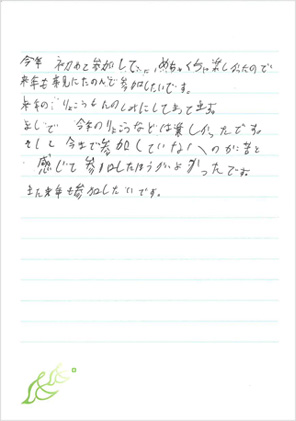 今年 初めて参加して、めちゃくちゃ楽しかったので
来年も 見にたのんで参加したいです。
来年の りょこうもたのしみにしてます。
よしで 今年のりょこうなどは楽しかったです。
もしも 今まで参加していない のが 苦と
感じて 参加したほうがよかったです。
また来年も参加したいです。